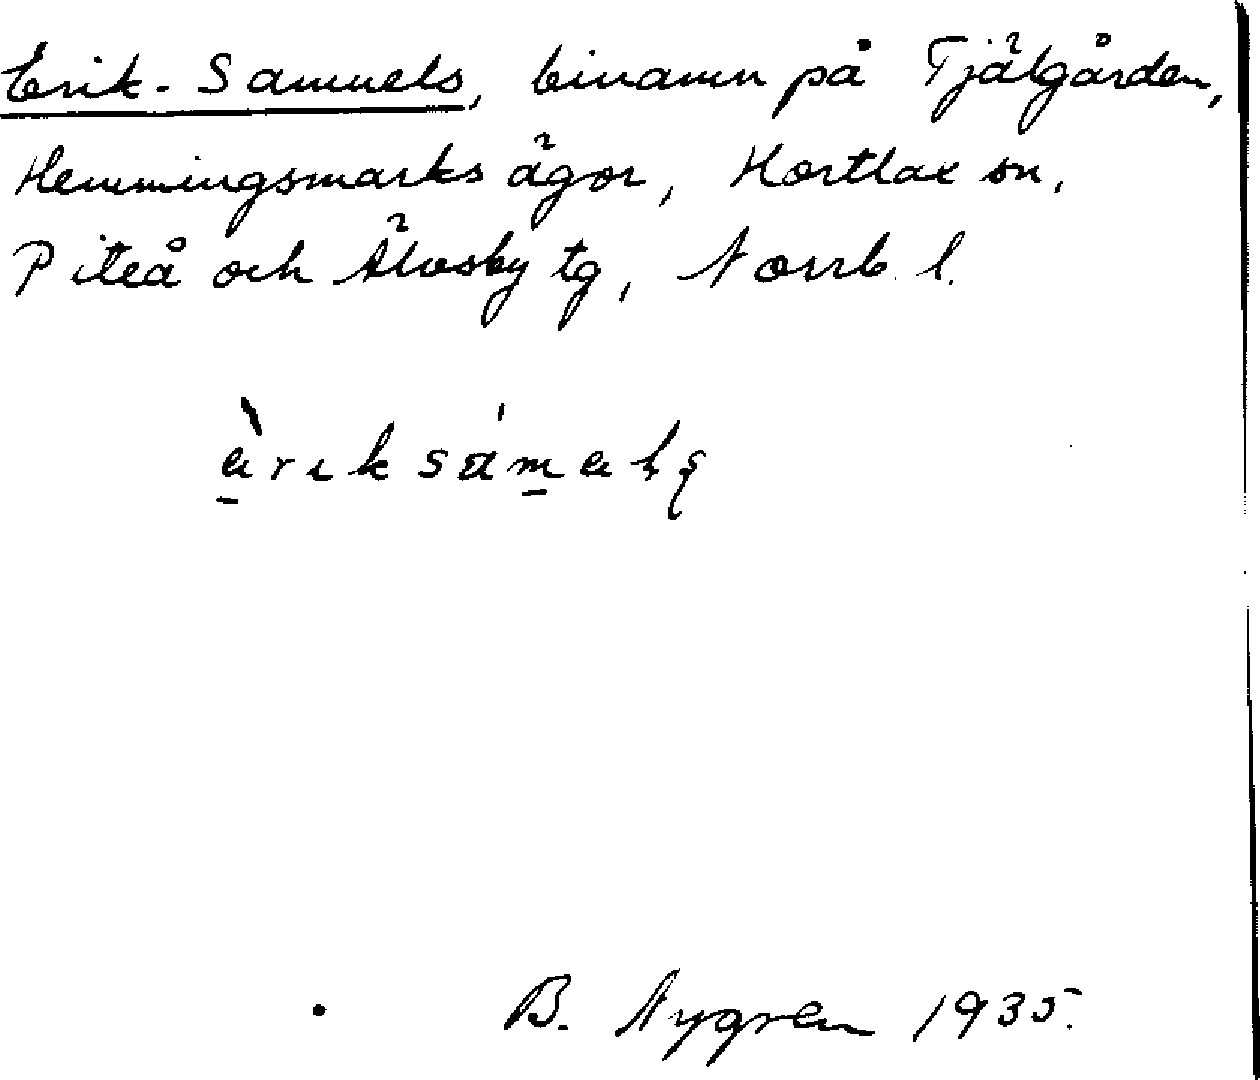 Erik-Samuels, binamn på Tjälgården,
Hemmingsmarks ägor, Hortlax sn,
Piteå och Älvsby tg, Norrb. l.
B. Nygren 1935.